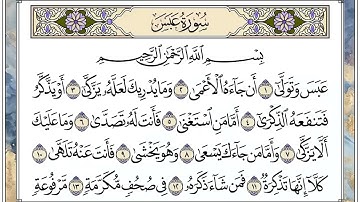 سُورَةُ عَبَسَ
بِسْمِ اللَّهِ الرَّحْمَٰنِ الرَّحِيمِ
عَبَسَ وَتَوَلَّىٰ ١ أَن جَاءَهُ الْأَعْمَىٰ ٢ وَمَا يُدْرِيكَ لَعَلَّهُ يَزَّكَّىٰ ٣ أَوْ يَذَّكَّرُ
فَتَنفَعَهُ الذِّكْرَىٰ ٤ أَمَّا مَنِ اسْتَغْنَىٰ ٥ فَأَنتَ لَهُ تَصَدَّىٰ ٦ وَمَا عَلَيْكَ
أَلَّا يَزَّكَّىٰ ٧ وَأَمَّا مَن جَاءَكَ يَسْعَىٰ ٨ وَهُوَ يَخْشَىٰ ٩ فَأَنتَ عَنْهُ تَلَهَّىٰ ١٠
كَلَّا إِنَّهَا تَذْكِرَةٌ ١١ فَمَن شَاءَ ذَكَرَهُ ١٢ فِي صُحُفٍ مُّكَرَّمَةٍ ١٣ مَّرْفُوعَةٍ